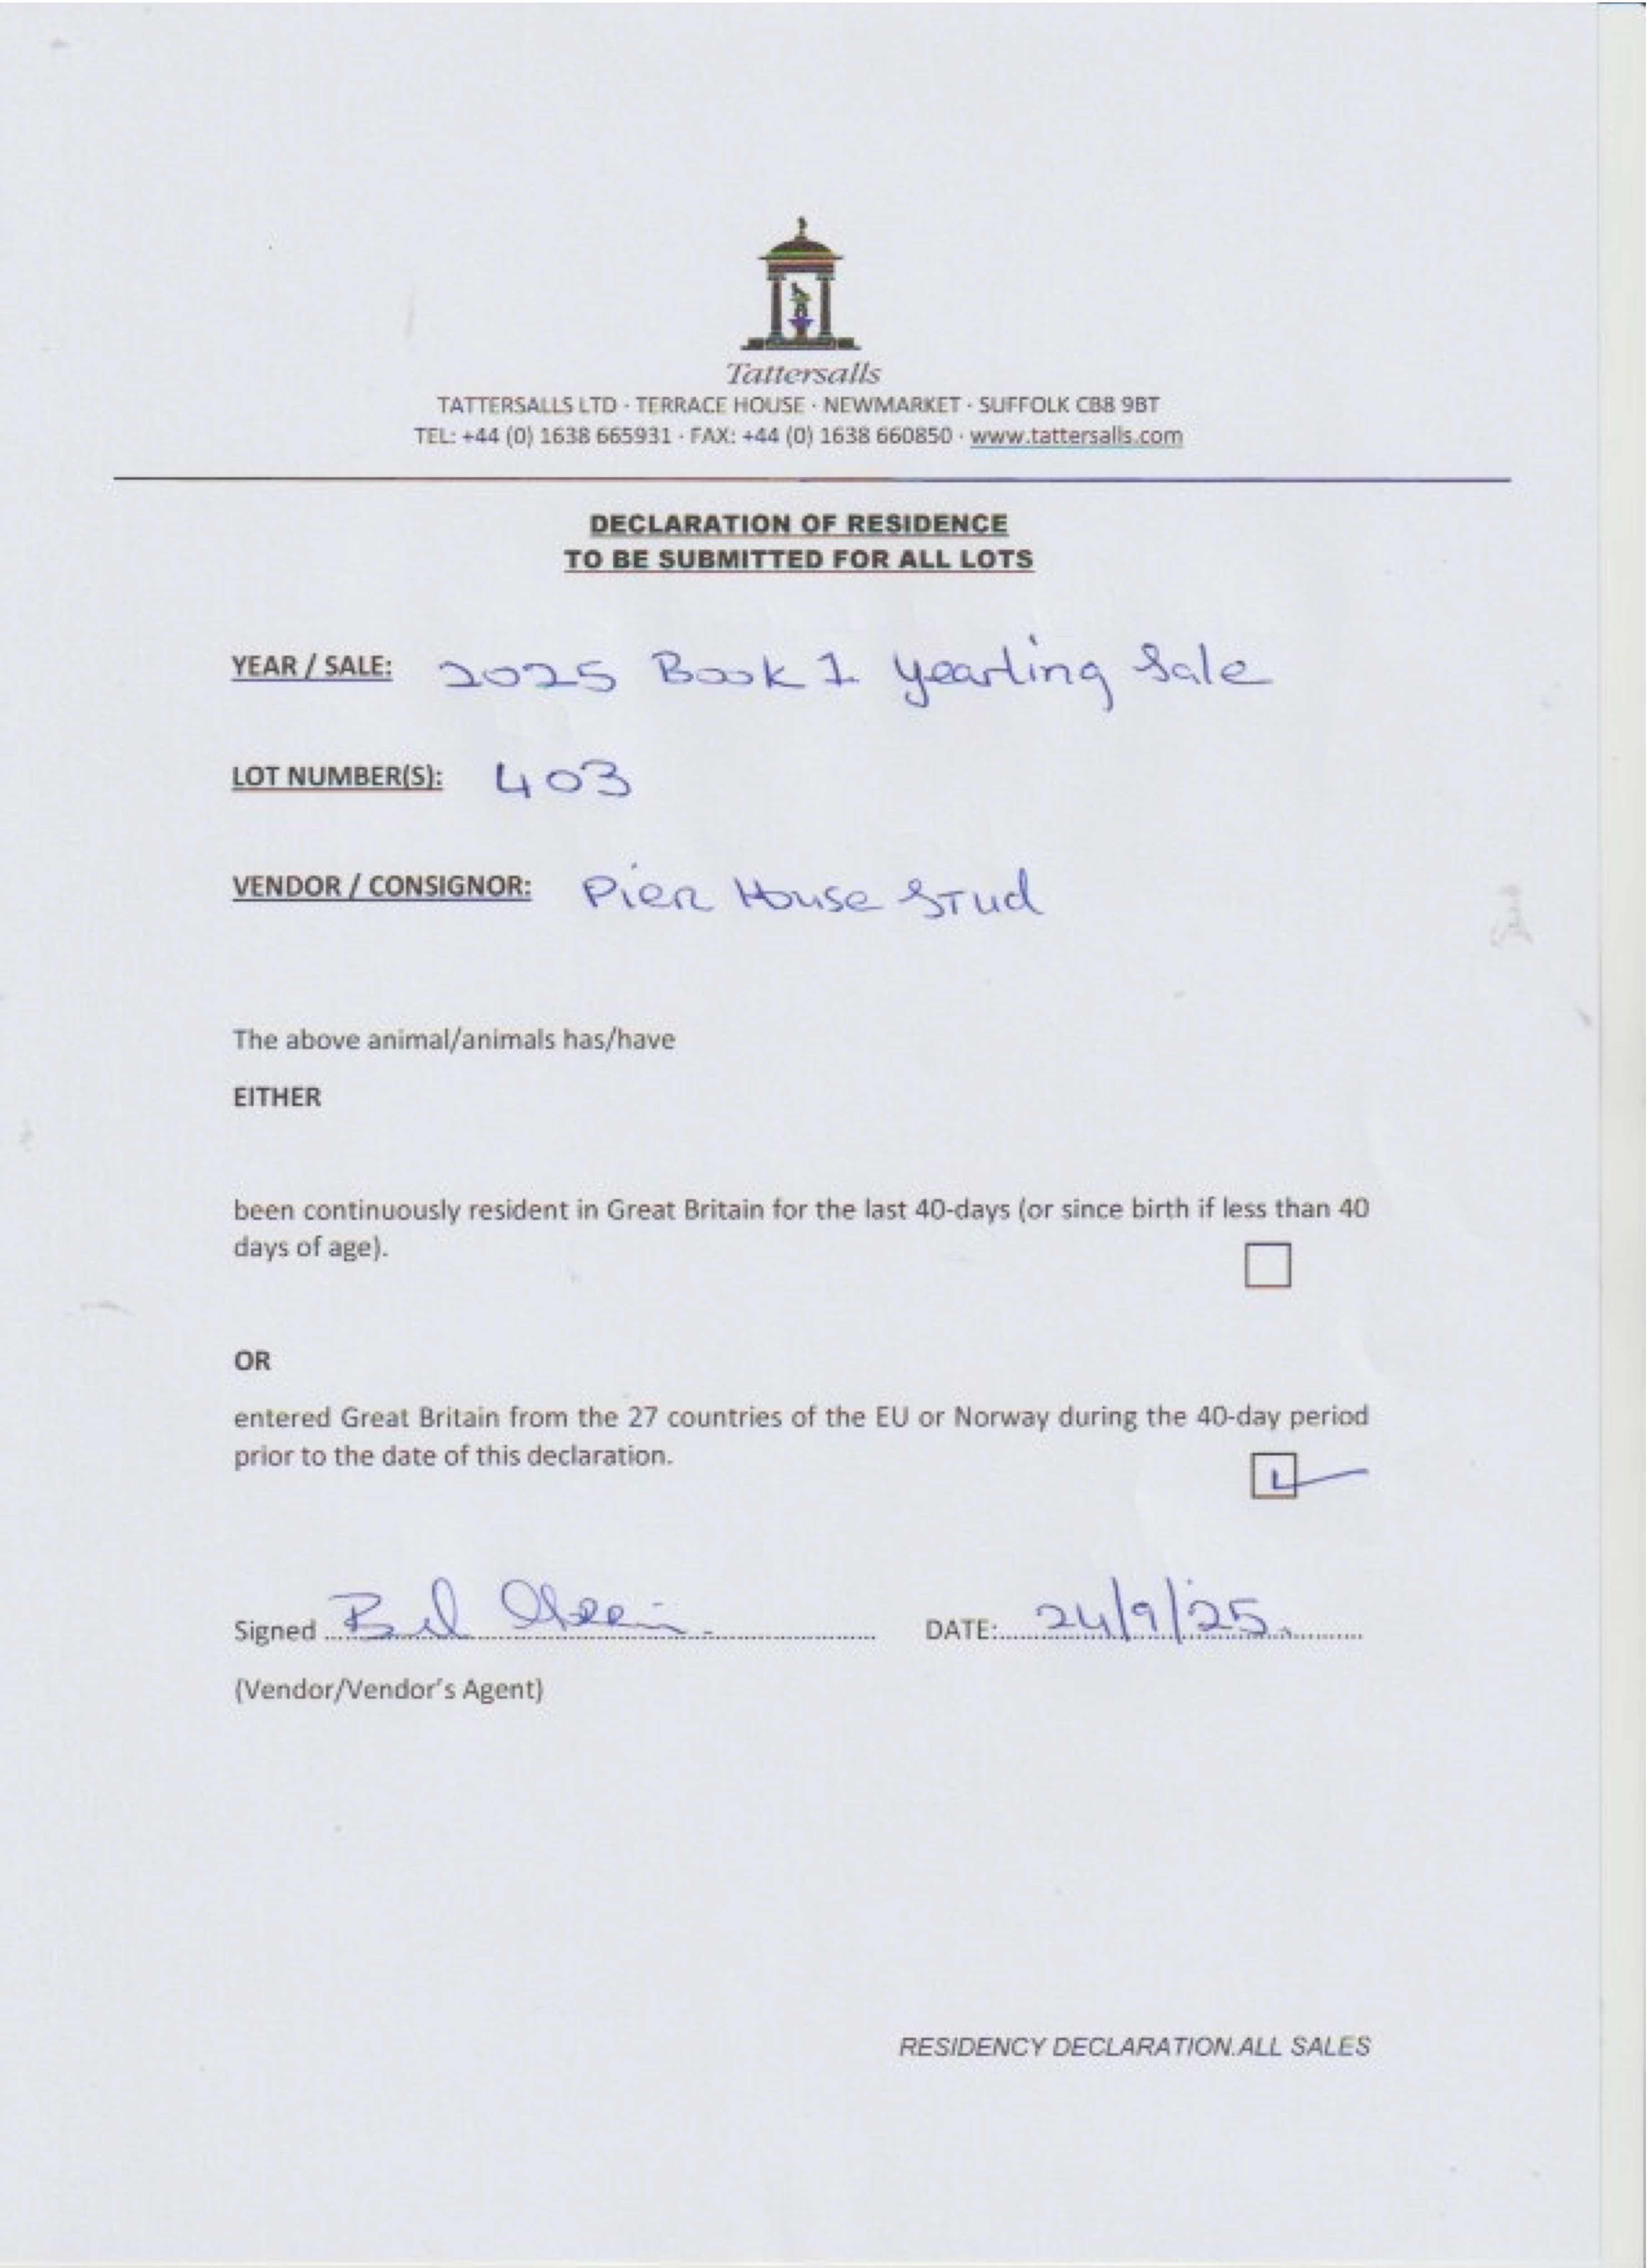 Tattersalls
TATTERSALLS LTD · TERRACE HOUSE · NEWMARKET · SUFFOLK CB8 9BT
TEL: +44 (0) 1638 665931 · FAX: +44 (0) 1638 660850 · www.tattersalls.com
DECLARATION OF RESIDENCE
TO BE SUBMITTED FOR ALL LOTS
YEAR / SALE: 2025 Book 1 yearling Sale
LOT NUMBER(S): 403
VENDOR / CONSIGNOR: Pier House Stud
The above animal/animals has/have
EITHER
been continuously resident in Great Britain for the last 40-days (or since birth if less than 40
days of age).
OR
entered Great Britain from the 27 countries of the EU or Norway during the 40-day period
prior to the date of this declaration.
Signed DATE: 24/9/25.
(Vendor/Vendor's Agent)
RESIDENCY DECLARATION.ALL SALES